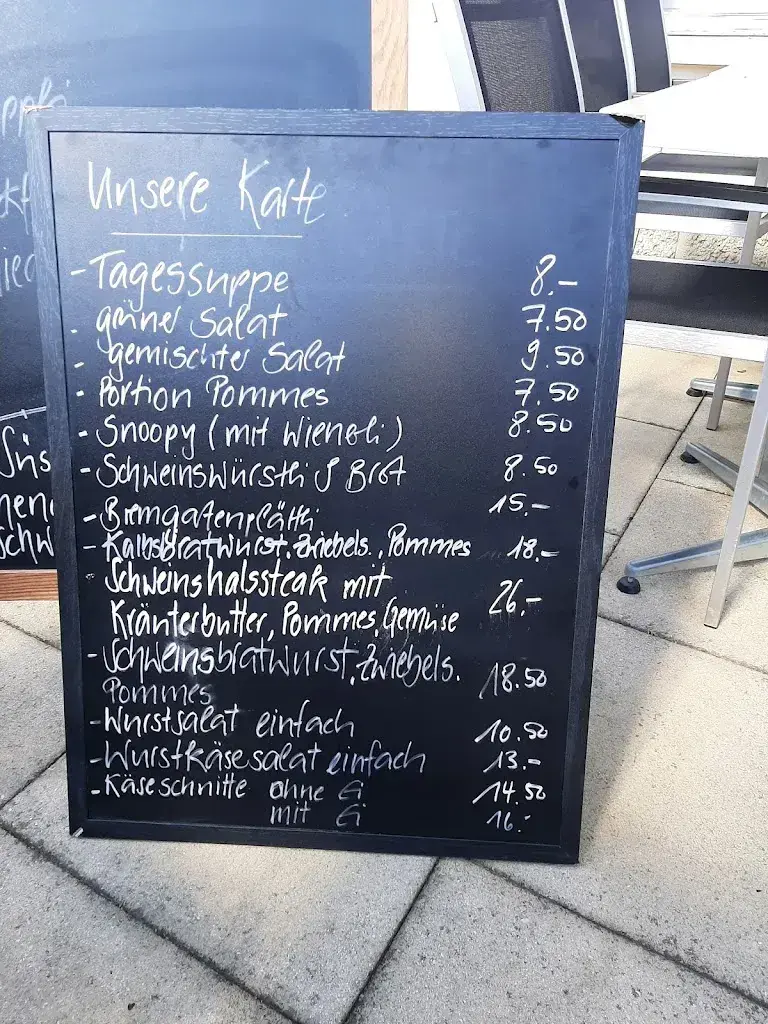 Unsere Karte
- Tagessuppe 8.-
- grüner Salat 7.50
- gemischter Salat 9.50
- Portion Pommes 7.50
- Snoopy (mit Wienerli) 8.50
- Schweinswürstli & Brot 8.50
- Bremgartenplättli 15.-
- Kalbsbratwurst, Zwiebels., Pommes 18.-
Schweinshalssteak mit
Kräuterbutter, Pommes, Gemüse 26.-
- Schweinsbratwurst, Zwiebels.
Pommes 18.50
- Wurstsalat einfach 10.50
- Wurstkäsesalat einfach 13.-
- Käseschnitte ohne Ei 14.50
mit Ei 16.-